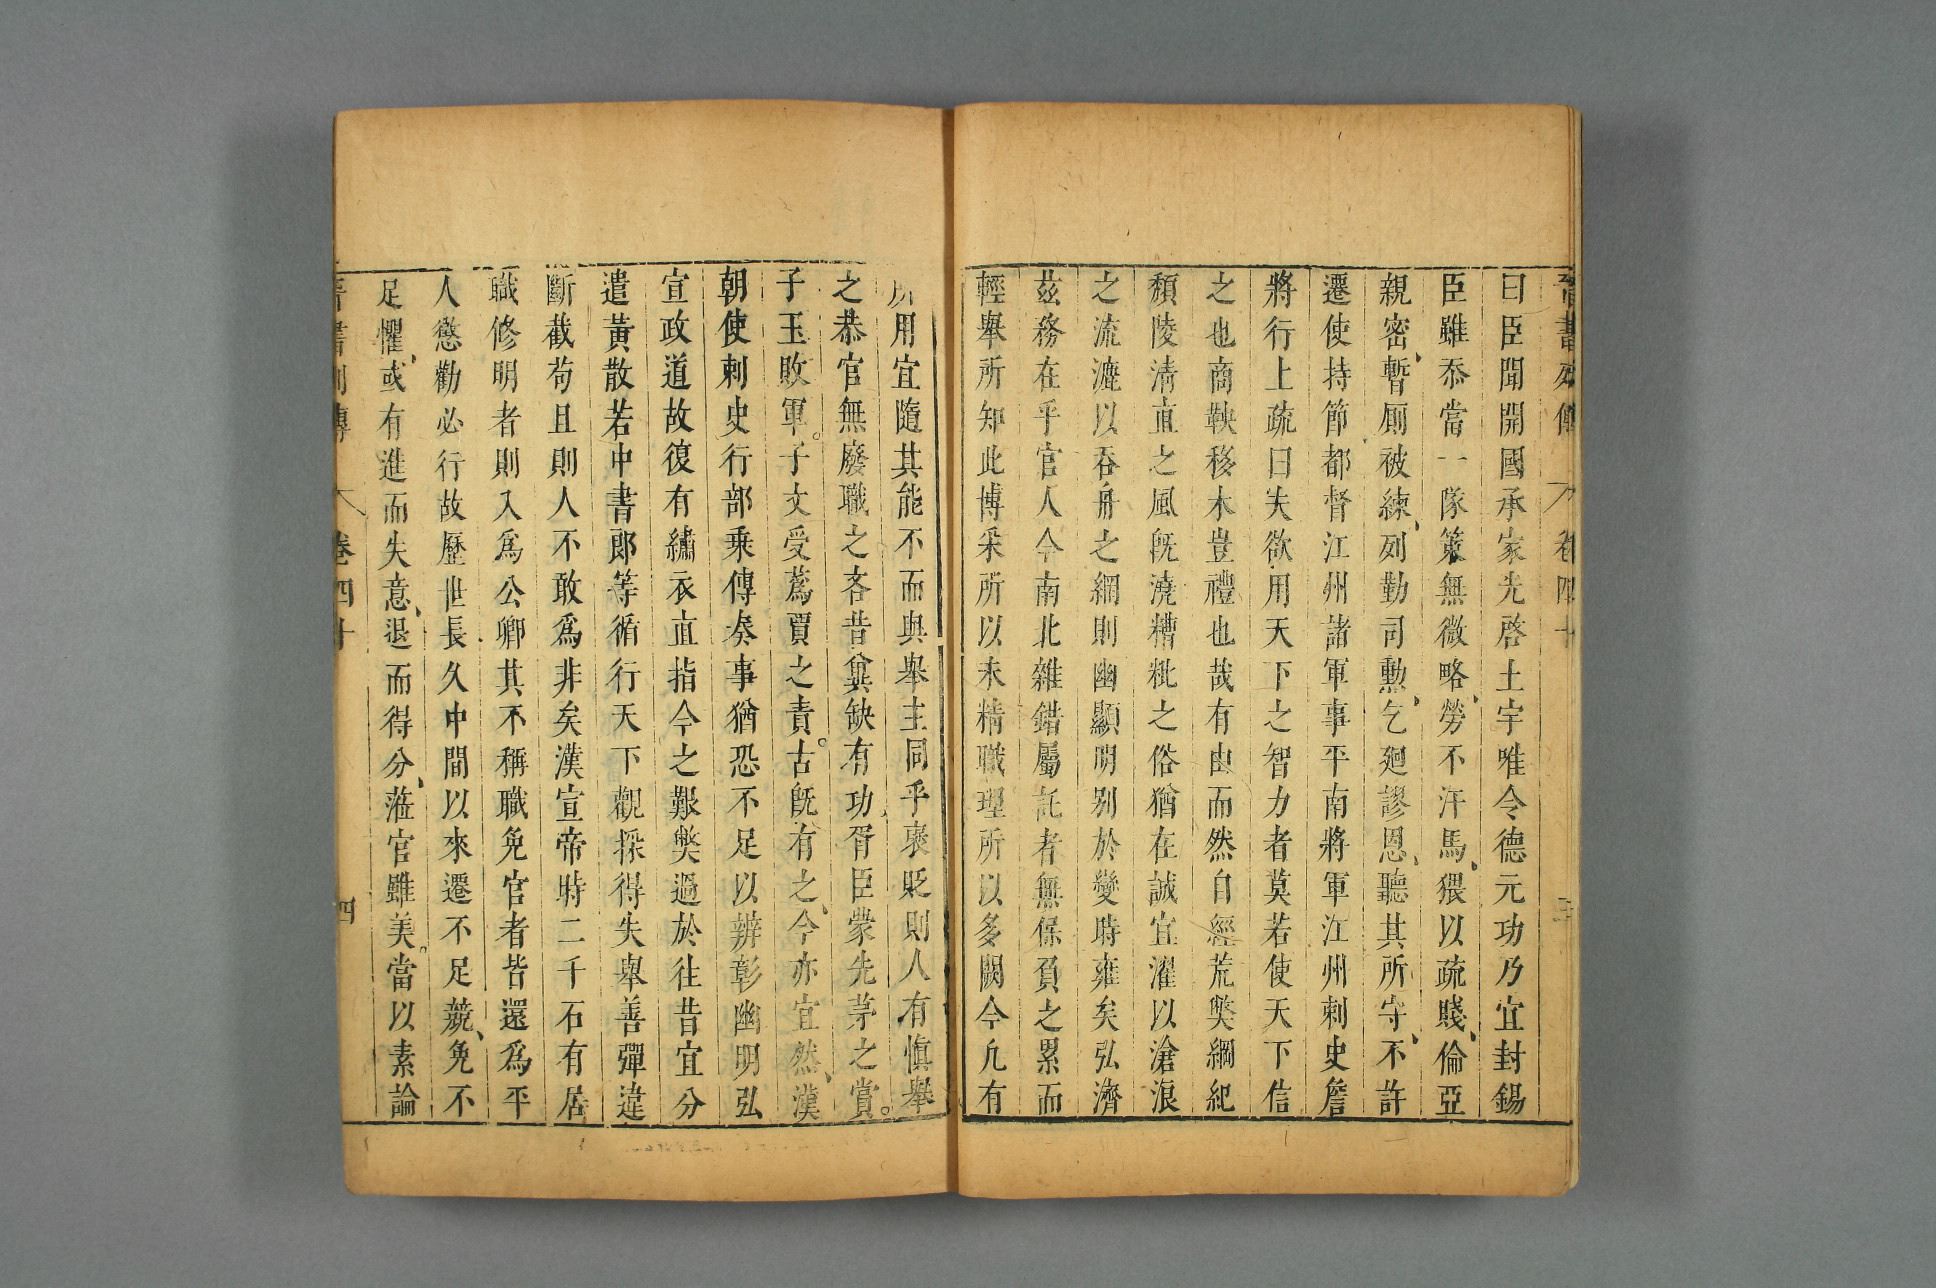 晉書列傳 卷四十 三
曰臣聞開國承家光啓土宇唯令德元功乃宜封錫
臣雖忝當一隊策無微略勞不汗馬猥以疏賤倫亞
親密暫厠被練列勤司勲乞廻謬恩聽其所守不許
遷使持節都督江州諸軍事平南將軍江州刺史詹
將行上疏曰夫欲用天下之智力者莫若使天下信
之也商鞅移木豈禮也哉有由而然自經荒獘綱紀
頹陵清直之風旣澆糟粃之俗猶在誠宜濯以滄浪
之流漉以吞舟之網則幽顯明别於變時雍矣弘濟
茲務在乎官人今南北雜錯屬託者無保負之累而
輕舉所知此博采所以未精職理所以多闕今凡有
所用宜隨其能不而與舉主同乎褒貶則人有慎舉
之恭官無廢職之吝昔兾缺有功胥臣蒙先茅之賞
子玉敗軍子文受蔿賈之責古旣有之今亦宜然漢
朝使刺史行部乘傳奏事猶恐不足以辨彰幽明弘
宣政道故復有繡衣直指今之艱獘過於往昔宜分
遣黃散若中書郎等循行天下觀採得失舉善彈違
斷截苟且則人不敢爲非矣漢宣帝時二千石有居
職修明者則入爲公卿其不稱職免官者皆還爲平
人懲勸必行故歷世長久中間以來遷不足競免不
足懼或有進而失意退而得分蒞官雖美當以素論
晉書列傳 卷四十 四